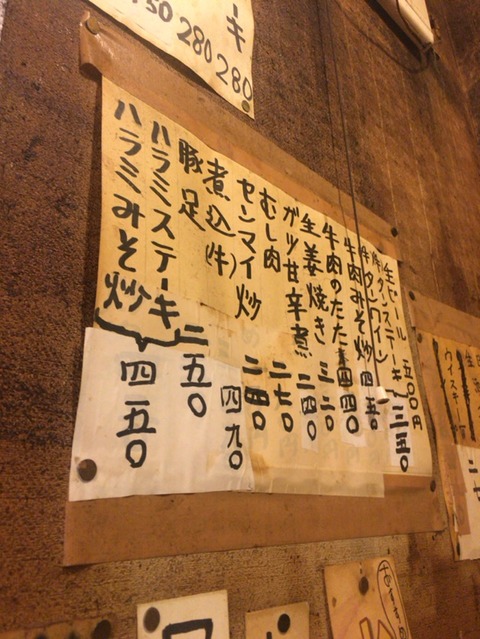 ーキ
280 280
生セール 五〇〇円
タンステーキ
タンワイン 三五〇
牛肉みそ炒 四五〇
牛肉のたたき 四四〇
生姜焼き 三二〇
ガツ甘辛煮 二四〇
むし肉 二七〇
センマイ炒 二四〇
煮込(牛) 四九〇
豚足 二五〇
ハラミステーキ
ハラミみそ炒 四五〇
ウイスキー